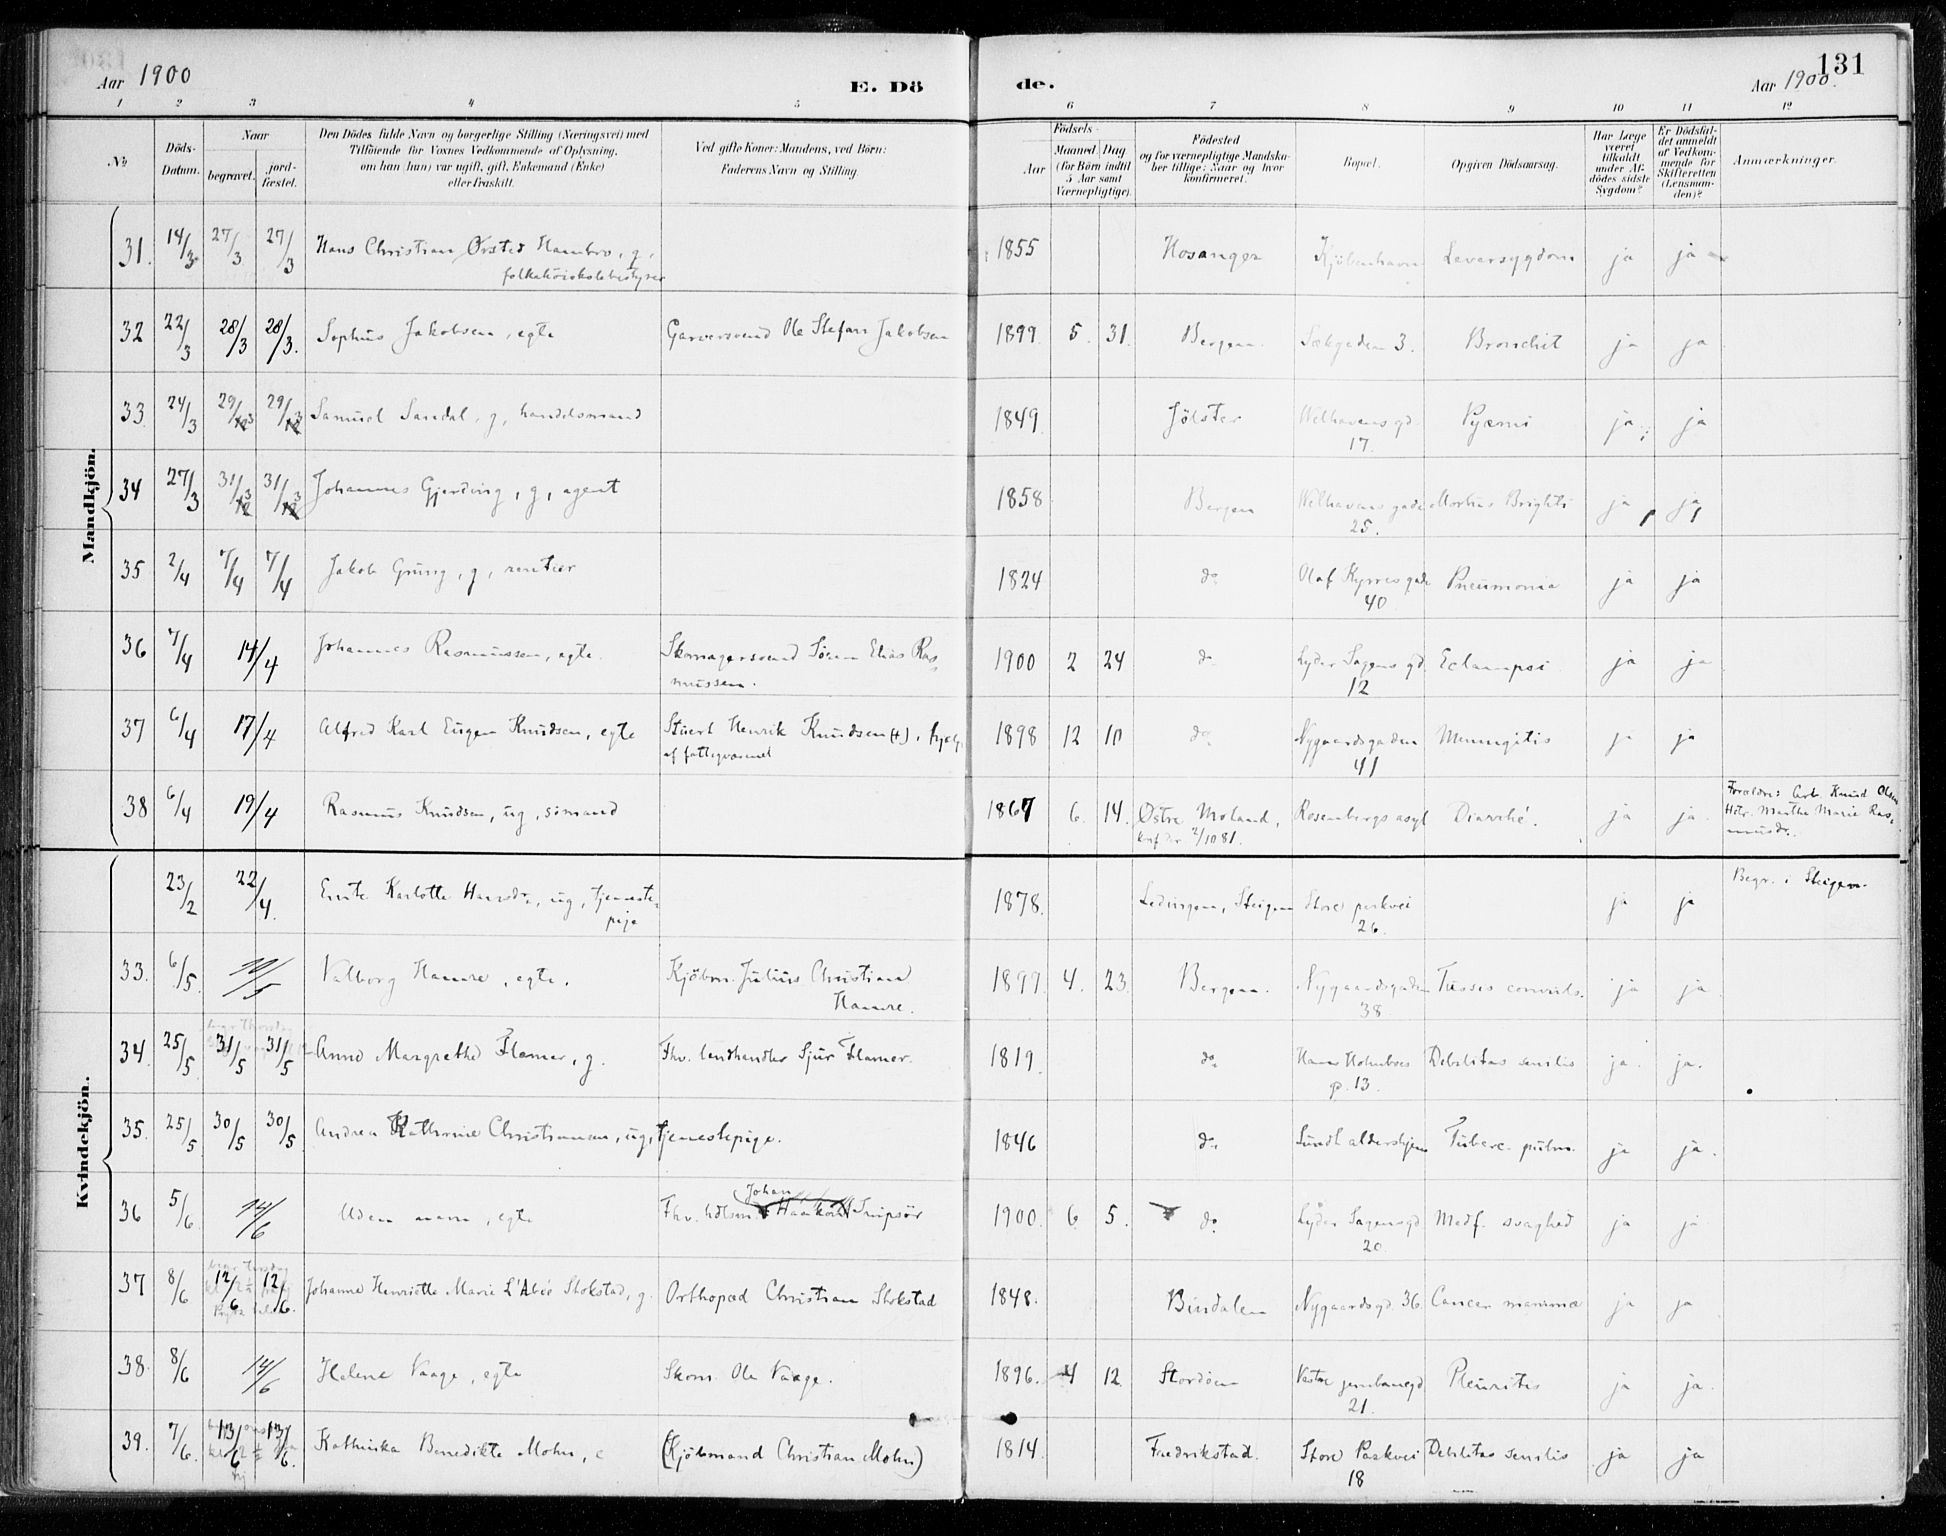 Aar 1900
E. Dö
de.
131
Aar 1900.
1 2 3 4 5 6 7 8 9 10 11 12
No
Döds-Datum.
Naar
begravet.
jord-fæstet.
Den Dödes fulde Navn og borgerlige Stilling (Næringsvei) med
Tilföiende for Voxnes Vedkommende af Oplysning,
om han (hun) var ugift, gift, Enkemand (Enke)
eller fraskilt.
Ved gifte Koner: Mandens, ved Börn:
Faderens Navn og Stilling.
Födsels-
Aar
Maaned
Dag
(for Börn indtil
5 Aar samt
Værnepligtige).
Födested
og for værnepligtige Mandska-
ber tillige: Naar og hvor
konfirmeret.
Bopæl.
Opgiven Dödsaarsag.
Har Læge
været
tilkaldt
under Af-
dödes sidste
Sygdom?
Er Dödsfal-
det anmeldt
af Vedkom-
mende for
Skifteretten
(Lensman-
den)?
Anmærkninger.
Mandkjön.
31. 14/3 27/3 27/3 Hans Christian Ørsted Hambro, g, 1855 Hosanger Kjöbenhavn Leversygdom ja ja
folkehöiskolebestyrer
32 22/3 28/3 28/3. Sophus Jakobsen, egte Garversvend Ole Stefan Jakobsen 1899. 5. 31. Bergen. 3. Bronchit ja ja
33 24/3 29/3 29/3 Samuel Sandal, g, handelsmand 1849. Jölster Welhavens gd. 17. Pyæmi ja ja
34 27/3 31/3 31/3 Johannes Gjerding, g, agent 1858 Bergen Welhavens gade 25. Morbus Brighti ja ja
35 2/4 7/4 7/4 Jakob Grung, g, rentier 1824 do Olaf Kyrres gade 40 Pneumonia ja ja
36 7/4 14/4 Johannes Rasmussen, egte. Skomagersvend Sören Elias Ras-
mussen. 1900 2 24 do Lyder Sagens gd. 12 Eclampsi ja ja
37 6/4 17/4 Alfred Karl Eugen Knudsen, egte Stuert Henrik Knudsen (+),
af fattigvæsenet 1898 12 10 do Nygaardsgaden 41 Meningitis ja ja
38 6/4 19/4 Rasmus Knudsen, ug, sömand 1867 6. 14. Østre Moland, Rosenbergs asyl Diarrhé. ja ja. Forældre: Arb. Knud Olsen
konf der 2/10 81. Hstr. Marthe Marie Ras-
musdr.
Kvindekjön.
23/2 22/4. Karlotte Hansdr., ug, tjeneste-
pige 1878. Ledingen, Steigen Store parkvei 26. ja ja Begr. i Steigen.
33. 6/5. 10/5 Valborg Hamre, egte. Kjöbm. Julius Christian
Hamre. 1899. 4. 23. Bergen. Nygaardsgaden 38. Tussis convuls. ja ja.
34. 25/5 31/5 31/5 Anne Margrethe Flamer, g. Fhv. landhandler Sjur Flamer. 1819. do Hans Holmboes g. 13. Debilitas senilis ja. ja.
35. 25/5 30/5 30/5 Andrea Kathrine Christiansen, ug, tjenestepige. 1846 do Sundt aldershjem Tuberc. pulm. ja ja.
36 5/6. 14/6 Uden navn, egte Johan
Fhv. 1900. 6 5. do Lyder Sagensgd. 20. Medf. svaghed ja ja
37 8/6 12/6 12/6. Johanne Henriette Marie L'Abée Stokstad, g. Orthopæd Christian Stokstad 1848. Bindalen Nygaardsgd. 36. Cancer mammæ ja ja
38. 8/6 14/6 Helene Vaage, egte Skom. Ole Vaage. 1896. 4 12 Stordöen Vestre jernbanegd 21. Pleuritis ja ja.
39. 7/6. 13/6 13/6. Kathinka Benedikte Mohn, e (Kjöbmand Christian Mohn) 1814 Fredrikstad. Store Parkvei 18 Debilitas senilis ja ja